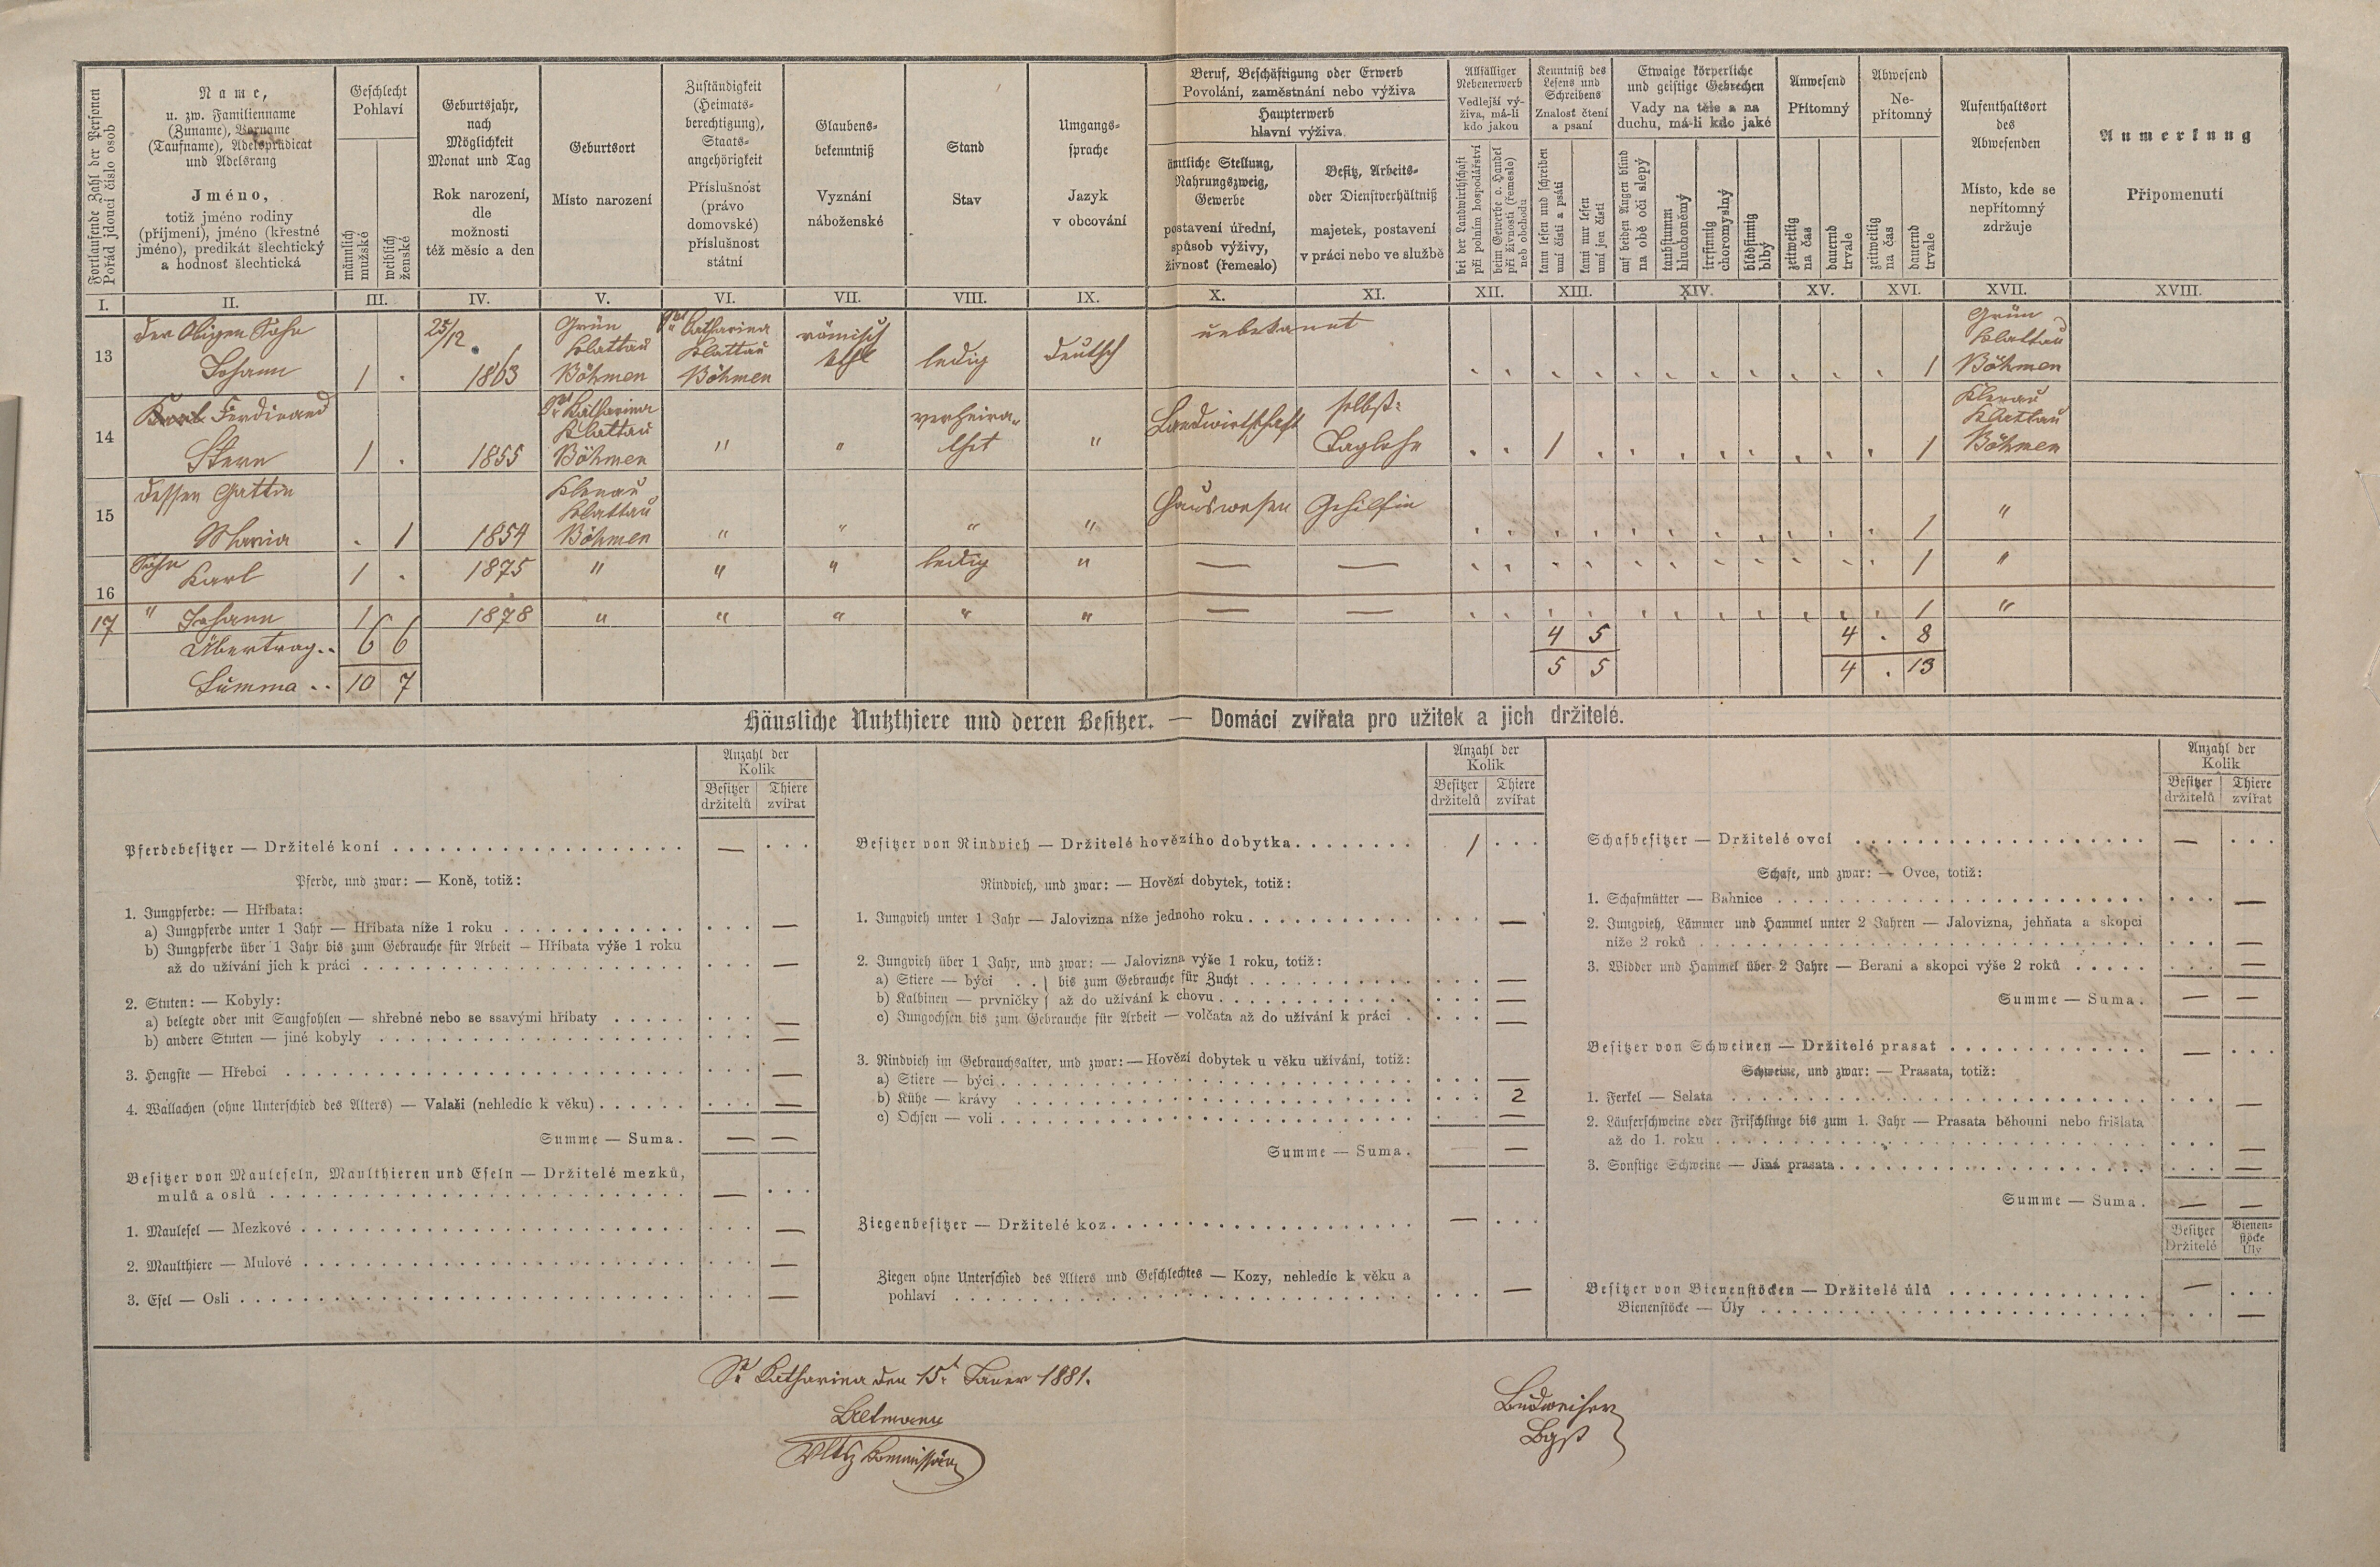 Fortlaufende Zahl der Personen
Pořád jdoucí číslo osob
Name,
u. zw. Familienname
(Zuname), Vorname
(Taufname), Adelsprädicat
und Adelsrang
Jméno,
totiž jméno rodiny
(příjmení), jméno (křestné
jméno), predikát šlechtický
a hodnosť šlechtická
Geschlecht
Pohlaví
männlich
mužské
weiblich
ženské
Geburtsjahr,
nach
Möglichkeit
Monat und Tag
Rok narození,
dle
možnosti
též měsíc a den
Geburtsort
Místo narození
Zuständigkeit
(Heimats-
berechtigung),
Staats-
angehörigkeit
Příslušnost
(právo
domovské)
příslušnost
státní
Glaubens-
bekenntniß
Vyznání
náboženské
Stand
Stav
Umgangs-
sprache
Jazyk
v obcování
Beruf, Beschäftigung oder Erwerb
Povolání, zaměstnání nebo výživa
Haupterwerb
hlavní výživa
ämtliche Stellung,
Nahrungszweig,
Gewerbe
postavení úřední,
spůsob výživy,
živnosť (řemeslo)
Besitz, Arbeits-
oder Dienstverhältniß
majetek, postavení
v práci nebo ve službě
Allfälliger
Nebenerwerb
Vedlejší vý-
živa, má-li
kdo jakou
bei der Landwirthschaft
při polním hospodářství
beim Gewerbe o. Handel
při živnosti (řemesle)
neb obchodu
Kenntniß des
Lesens und
Schreibens
Znalosť čtení
a psaní
kann lesen und schreiben
umí čísti a psáti
kann nur lesen
umí jen čísti
Etwaige körperliche
und geistige Gebrechen
Vady na těle a na
duchu, má-li kdo jaké
auf beiden Augen blind
na obě oči slepý
taubstumm
hluchoněmý
irrsinnig
choromyslný
blödsinnig
blbý
Anwesend
Přítomný
zeitweilig
na čas
dauernd
trvale
Abwesend
Ne-
přítomný
zeitweilig
na čas
dauernd
trvale
Aufenthaltsort
des
Abwesenden
Místo, kde se
nepřítomný
zdržuje
Anmerkung
Připomenutí
I. II. III. IV. V. VI. VII. VIII. IX. X. XI. XII. XIII. XIV. XV. XVI. XVII. XVIII.
13 der Obigen Sohn
Johann 1 . 25/12 1863
Grün
Klattau
Böhmen
St Catharina
Klattau
Böhmen
römisch
ledig deutsch unbekannt 1
Grün
Klattau
Böhmen
14 Karl Ferdinand
Stern 1 . 1855
St Katharina
Klattau
Böhmen
" " verheira-
thet " Landwirtschaft selbst:
Taglohn . . 1 1
Klenau
Klattau
Böhmen
15 dessen Gattin
Maria . 1 1854
Klenau
Klattau
Böhmen
" " " " Hauswesen Gehilfin 1 "
16 Sohn Karl 1 . 1875 " " " ledig " — — 1 "
17 " Johann 1 1878 " " " " " — — 1 "
Übertrag.. 6 6 4 5 4 . 8
Summa .. 10 7 5 5 4 . 13
Häusliche Nutzthiere und deren Besitzer. — Domácí zvířata pro užitek a jich držitelé.
Anzahl der
Kolik
Besitzer
držitelů
Thiere
zvířat
Pferdebesitzer — Držitelé koní —
Pferde, und zwar: — Koně, totiž:
1. Jungpferde: — Hříbata:
a) Jungpferde unter 1 Jahr — Hříbata níže 1 roku —
b) Jungpferde über 1 Jahr bis zum Gebrauche für Arbeit — Hříbata výše 1 roku
až do užívání jich k práci —
2. Stuten: — Kobyly:
a) belegte oder mit Saugfohlen — shřebné nebo se ssavými hříbaty —
b) andere Stuten — jiné kobyly —
3. Hengste — Hřebci —
4. Wallachen (ohne Unterschied des Alters) — Valaši (nehledíc k věku) —
Summe — Suma. — —
Besitzer von Mauleseln, Maulthieren und Eseln — Držitelé mezků,
mulů a oslů —
1. Maulesel — Mezkové —
2. Maulthiere — Mulové —
3. Esel — Osli —
Anzahl der
Kolik
Besitzer
držitelů
Thiere
zvířat
Besitzer von Rindvieh — Držitelé hovězího dobytka 1
Rindvieh, und zwar: — Hovězí dobytek, totiž:
1. Jungvieh unter 1 Jahr — Jalovizna níže jednoho roku —
2. Jungvieh über 1 Jahr, und zwar: — Jalovizna výše 1 roku, totiž:
a) Stiere — býci . . } bis zum Gebrauche für Zucht —
b) Kalbinen — prvničky } až do užívání k chovu —
c) Jungochsen bis zum Gebrauche für Arbeit — volčata až do užívání k práci —
3. Rindvieh im Gebrauchsalter, und zwar: — Hovězí dobytek u věku užívání, totiž:
a) Stiere — býci —
b) Kühe — krávy 2
c) Ochsen — voli —
Summe — Suma. —
Ziegenbesitzer — Držitelé koz —
Ziegen ohne Unterschied des Alters und Geschlechtes — Kozy, nehledíc k věku a
pohlaví —
Anzahl der
Kolik
Besitzer
držitelů
Thiere
zvířat
Schafbesitzer — Držitelé ovcí —
Schafe, und zwar: — Ovce, totiž:
1. Schafmütter — Bahnice —
2. Jungvieh, Lämmer und Hammel unter 2 Jahren — Jalovizna, jehňata a skopci
níže 2 roků —
3. Widder und Hammel über 2 Jahre — Berani a skopci výše 2 roků —
Summe — Suma. — —
Besitzer von Schweinen — Držitelé prasat —
Schweine, und zwar: — Prasata, totiž:
1. Ferkel — Selata —
2. Läuferschweine oder Frischlinge bis zum 1. Jahr — Prasata běhouni nebo frišlata
až do 1. roku —
3. Sonstige Schweine — Jiná prasata —
Summe — Suma. — —
Besitzer
Držitelé
Bienen-
stöcke
Úly
Besitzer von Bienenstöcken — Držitelé úlů —
Bienenstöcke — Úly —
St Katharina den 15t Janer 1881.
Altmann
Kommissär
Budweiser